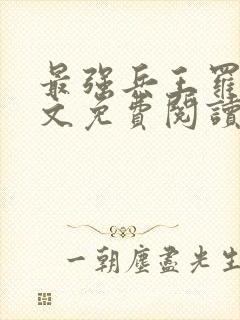 最强兵王羅
文免費閱讀
一朝塵盡光生